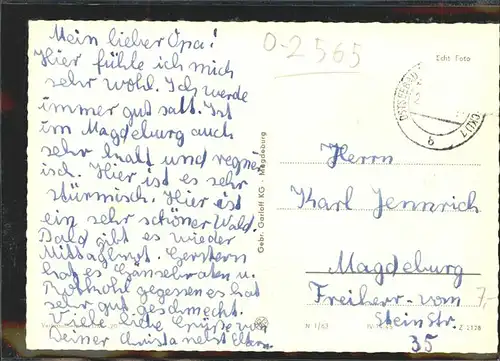 Mein lieber Opa!
Hier fühle ich mich
sehr wohl. Ich werde
immer gut satt. Ist
im Magdeburg auch
sehr kalt und regne
isch. Hier ist es sehr
stürmisch. Hier ist
ein sehr schöner Wald.
Bald gibt es wieder
Mittagbrot. Gerstern
hat es Gänsebraten u.
Rotkohl gegessen es hat
sehr gut geschmeckt.
Viele liebe Grüße von
Deiner Christa nebst Eltern.
0-2565
Echt Foto
OSTSEEBAD
b
Gebr. Garloff KG · Magdeburg
Herrn
Karl Jennrich
Magdeburg
Freiherr-vom
Steinstr.
35
7,-
N 1/63
Z 1128